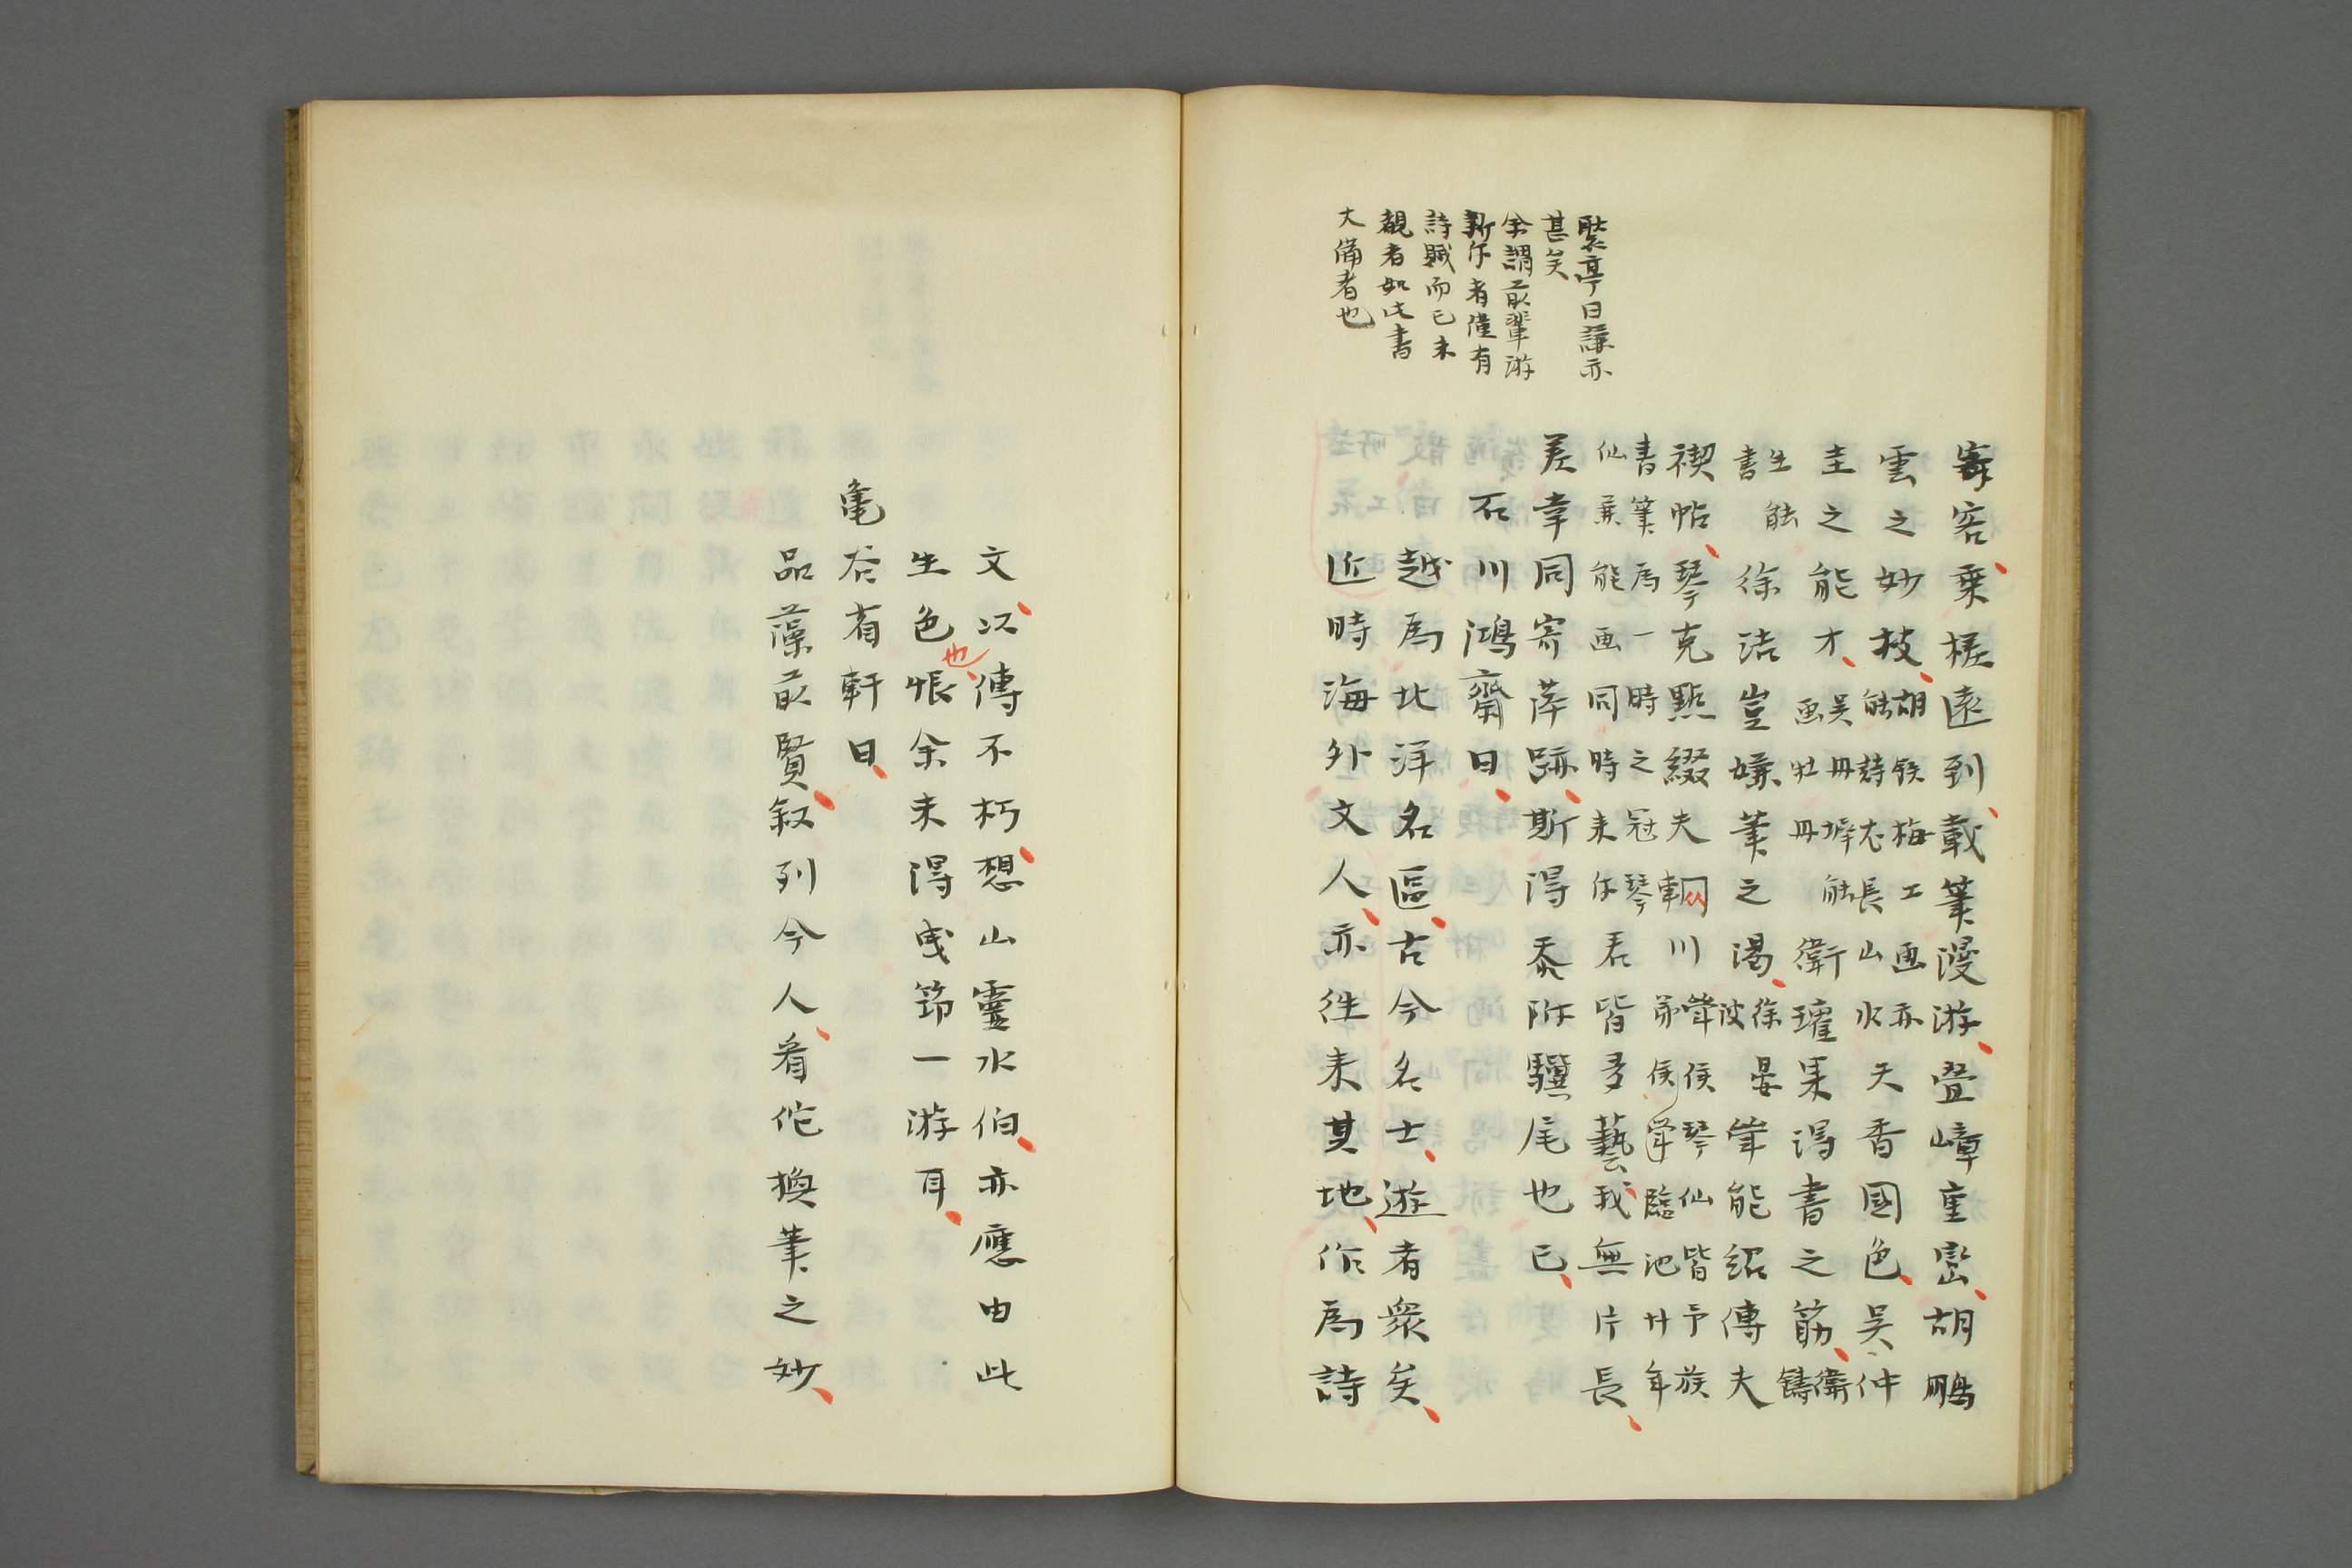 裴亭曰謙亦
甚矣
余謂前輩游
新佐者僅有
詩賦而已未
覩者如此書
大備者也
寄客乗槎遠到載筆漫游畳嶂重巒胡鵬
雲之妙技胡鉄梅工画亦能詩衣長山水天香國色呉仲
圭之能才呉冊墀能画牡丹衛瓘果得書之筋衛鋳
生能書徐浩豈嫌筆之渇徐晏波聳能紹傳夫
禊帖琴克點綴夫輞川聳侯琴仙皆予族弟侯聳臨池廿年
書筆為一時之冠琴仙兼能画同時来佐君皆多藝我無片長
差幸同寄萍跡斯得忝附驥尾也已
石川鴻齋曰
越為北洋名區古今名士遊者衆矣
近時海外文人亦徃来其地作為詩
文以傳不朽想山靈水伯亦應由此
生色也悵余未得曳筇一游耳
亀谷省軒曰
品藻前賢叙列今人看佗換筆之妙